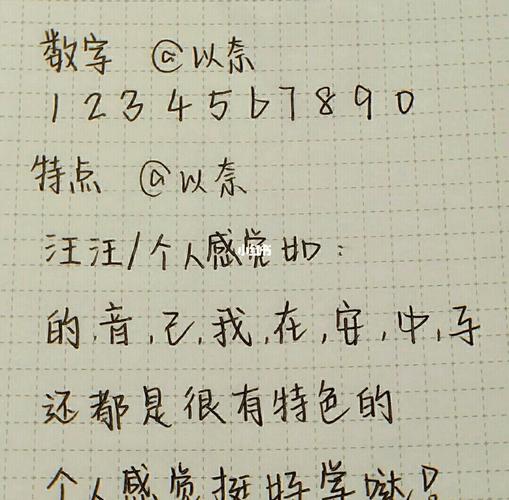 数字 @以奈
1 2 3 4 5 6 7 8 9 0
特点 @以奈
汪汪/个人感觉如:
小红书
的,音,己,我,在,安,中,子
还都是很有特色的
个人感觉挺好学哒